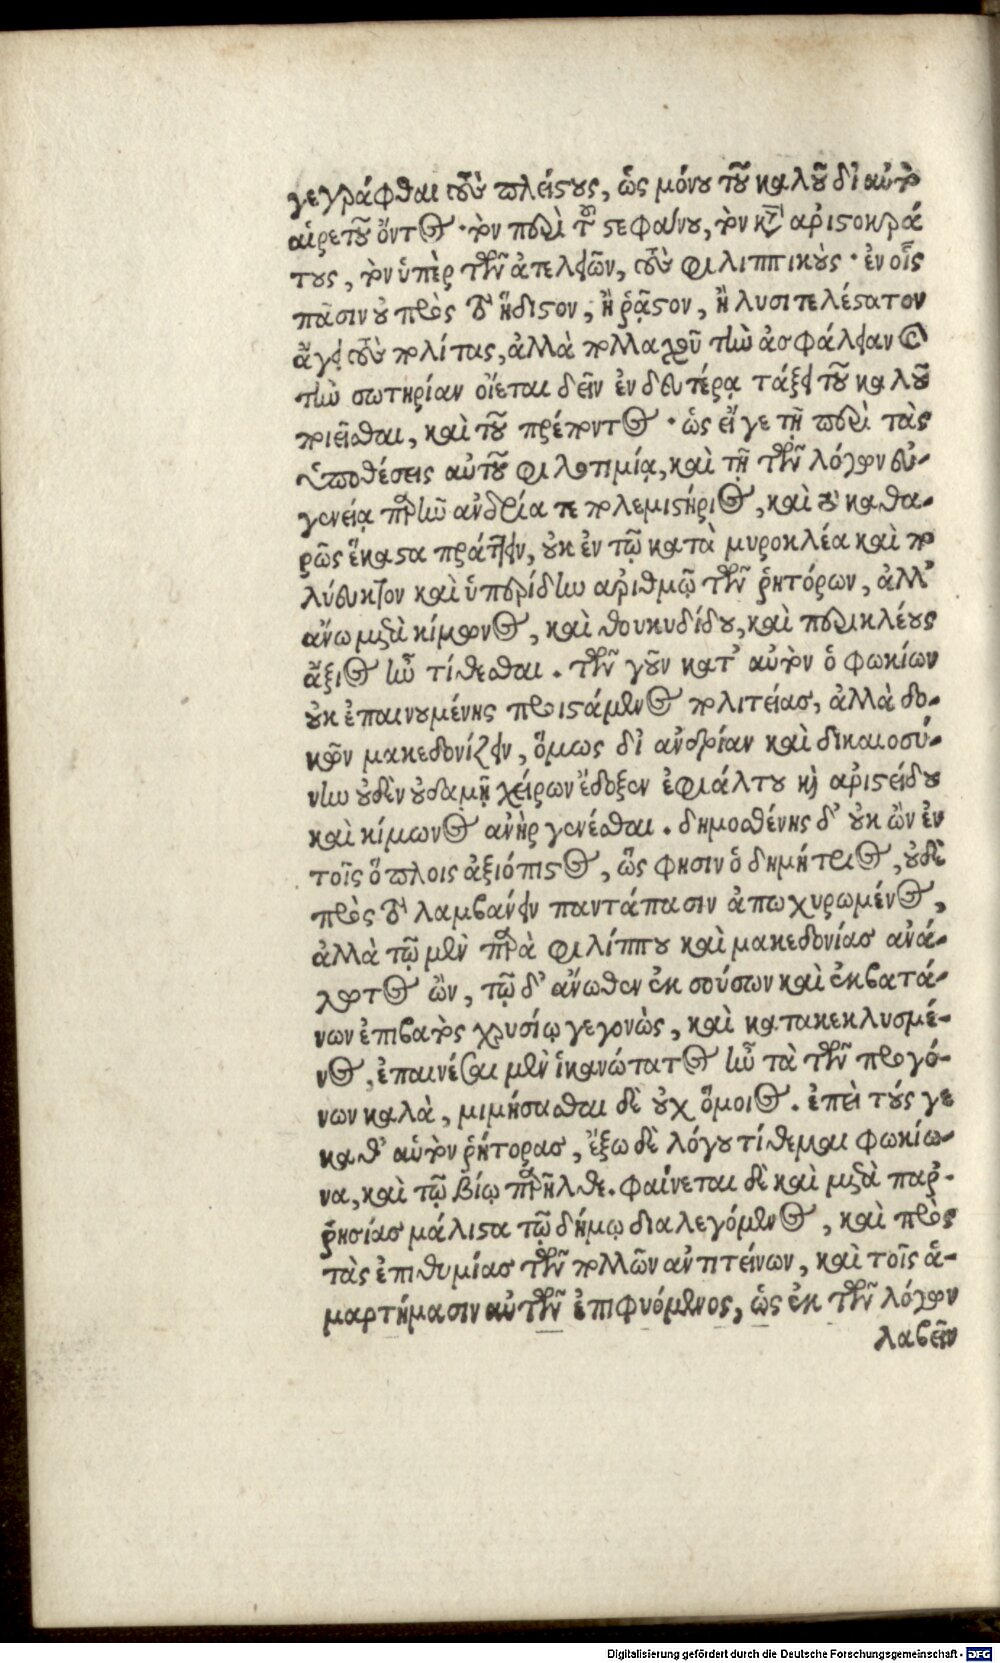 γεγράφθαι τοὺς πλείστους, ὡς μόνου τοῦ καλοῦ δι αὐτὸ
αἱρετοῦ ὄντος · τὸν περὶ τοῦ στεφάνου, τὸν κατ ἀριστοκρά
τους, τὸν ὑπὲρ τῶν ἀτελειῶν, τοὺς φιλιππικούς · ἐν οἷς
πᾶσιν οὐ πρὸς τὸ ἥδιστον, ἢ ῥᾷστον, ἢ λυσιτελέστατον
ἄγει τοὺς πολίτας, ἀλλὰ πολλαχοῦ τὴν ἀσφάλειαν καὶ
τὴν σωτηρίαν οἴεται δεῖν ἐν δευτέρᾳ τάξει τοῦ καλοῦ
ποιεῖσθαι, καὶ τοῦ πρέποντος · ὡς εἴ γε τῇ περὶ τὰς
ὑποθέσεις αὐτοῦ φιλοτιμίᾳ, καὶ τῇ τῶν λόγων εὐ-
γενείᾳ παρῆν ἀνδρία τε πολεμιστήριος, καὶ τὸ καθα-
ρῶς ἕκαστα πράττειν, οὐκ ἐν τῷ κατὰ μυροκλέα καὶ πο
λύευκτον καὶ ὑπερίδην ἀριθμῷ τῶν ῥητόρων, ἀλλ'
ἄνω μετὰ κίμωνος, καὶ θουκυδίδου, καὶ περικλέους
ἄξιος ἦν τίθεσθαι. τῶν γοῦν κατ' αὐτὸν ὁ φωκίων
οὐκ ἐπαινουμένης προιστάμενος πολιτείας, ἀλλὰ δο-
κῶν μακεδονίζειν, ὅμως δι ἀνδρίαν καὶ δικαιοσύ-
νην οὐδὲν οὐδαμῇ χείρων ἔδοξεν ἐφιάλτου καὶ ἀριστείδου
καὶ κίμωνος ἀνὴρ γενέσθαι. δημοσθένης δ' οὐκ ὢν ἐν
τοῖς ὅπλοις ἀξιόπιστος, ὥς φησιν ὁ δημήτριος, οὐδὲ
πρὸς τὸ λαμβάνειν παντάπασιν ἀπωχυρωμένος,
ἀλλὰ τῷ μὲν παρὰ φιλίππου καὶ μακεδονίας ἀνά-
λωτος ὢν, τῷ δ' ἄνωθεν ἐκ σούσων καὶ ἐκβατά-
νων ἐπιβατὸς χρυσίῳ γεγονὼς, καὶ κατακεκλυσμέ-
νος, ἐπαινέσαι μὲν ἱκανώτατος ἦν τὰ τῶν προγό-
νων καλὰ, μιμήσασθαι δὲ οὐχ ὅμοιος. ἐπεὶ τούς γε
καθ' αὑτὸν ῥήτορας, ἔξω δὲ λόγου τίθεμαι φωκίω-
να, καὶ τῷ βίῳ παρῆλθε. φαίνεται δὲ καὶ μετὰ παρ-
ρησίας μάλιστα τῷ δήμῳ διαλεγόμενος, καὶ πρὸς
τὰς ἐπιθυμίας τῶν πολλῶν ἀντιτείνων, καὶ τοῖς ἁ-
μαρτήμασιν αὐτῶν ἐπιφυόμενος, ὡς ἐκ τῶν λόγων
λαβεῖν
Digitalisierung gefördert durch die Deutsche Forschungsgemeinschaft - DFG